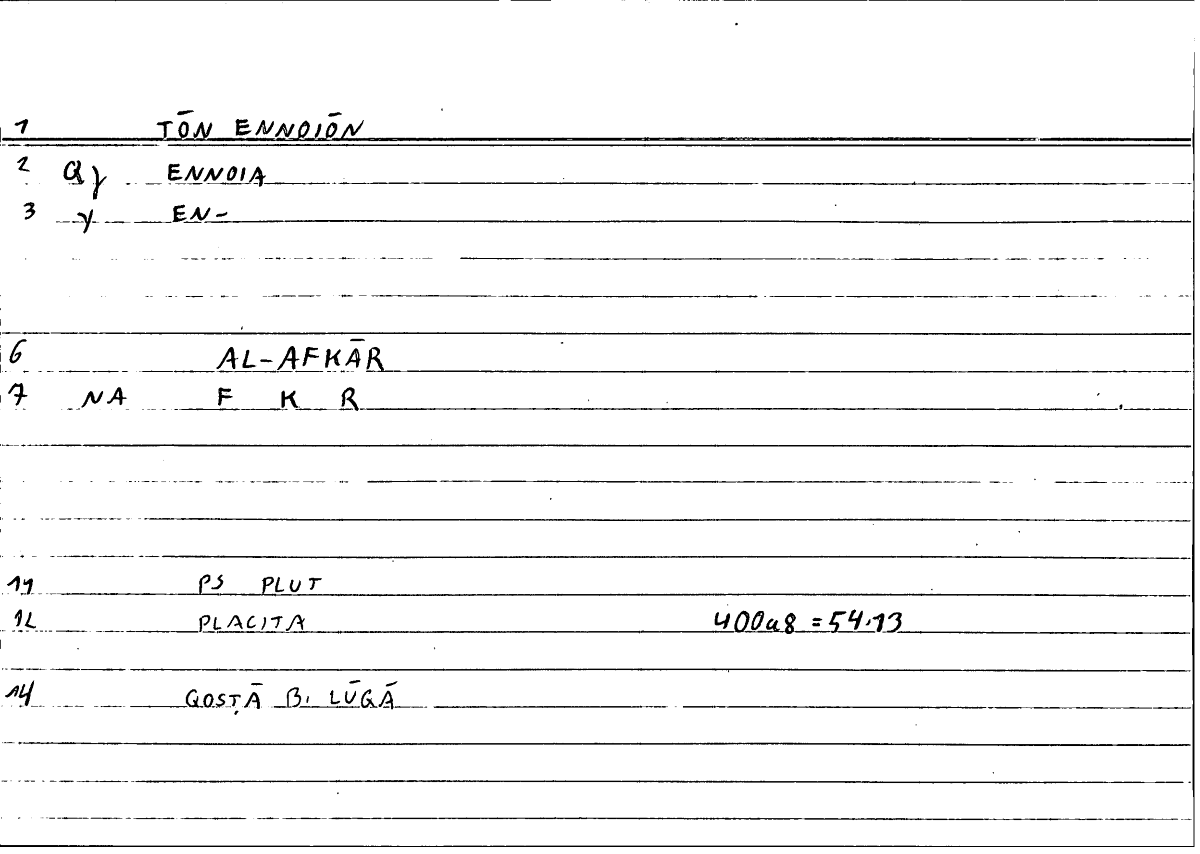 1 TŌN ENNOIŌN
2 Qγ ENNOIA
3 γ EN-
6 AL-AFKĀR
7 NA F K R
11 PS PLUT
12 PLACITA 400a8 = 54.13
14 QOSṬĀ B. LŪQĀ